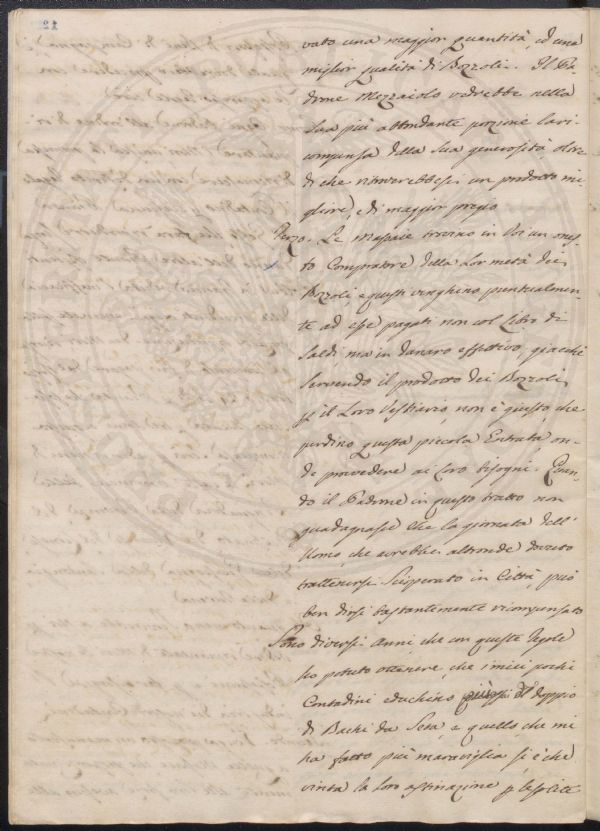 12
vato una maggior quantità, ed una
miglior qualità di Bozzoli. Il Pa-
drone Mezzaiolo vedrebbe nella
sua più abbondante porzione la ri-
compensa della sua generosità, oltre
di che ritroverebbesi un prodotto mi-
gliore, e di maggior pregio
Terzo. Le Massaie trovino in Voi un one-
sto Compratore della Lor metà dei
Bozzoli, e questi venghino puntualmen-
te ad esse pagati non col Libro di
Saldi, ma in danaro effettivo, giacchè
servendo il prodotto dei Bozzoli
p il Loro Vestiario, non è giusto, che
perdino questa piccola Entrata on-
de provvedere ai loro bisogni. Quan-
do il Padrone in questo tratto non
guadagnasse che la giornata dell'
Uomo, che avrebbe altronde dovuto
trattenersi Scioperato in Città, può
ben dirsi bastantemente ricompensato
Sono diversi Anni, che con queste regole
ho potuto ottenere, che i miei pochi
Contadini educhino il doppio
di Bachi da Seta, e quello che mi
ha fatto più maraviglia si è che
vinta la loro ostinazione p